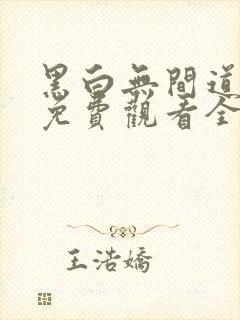 黑白無間道
免費觀看全
王浩嬌